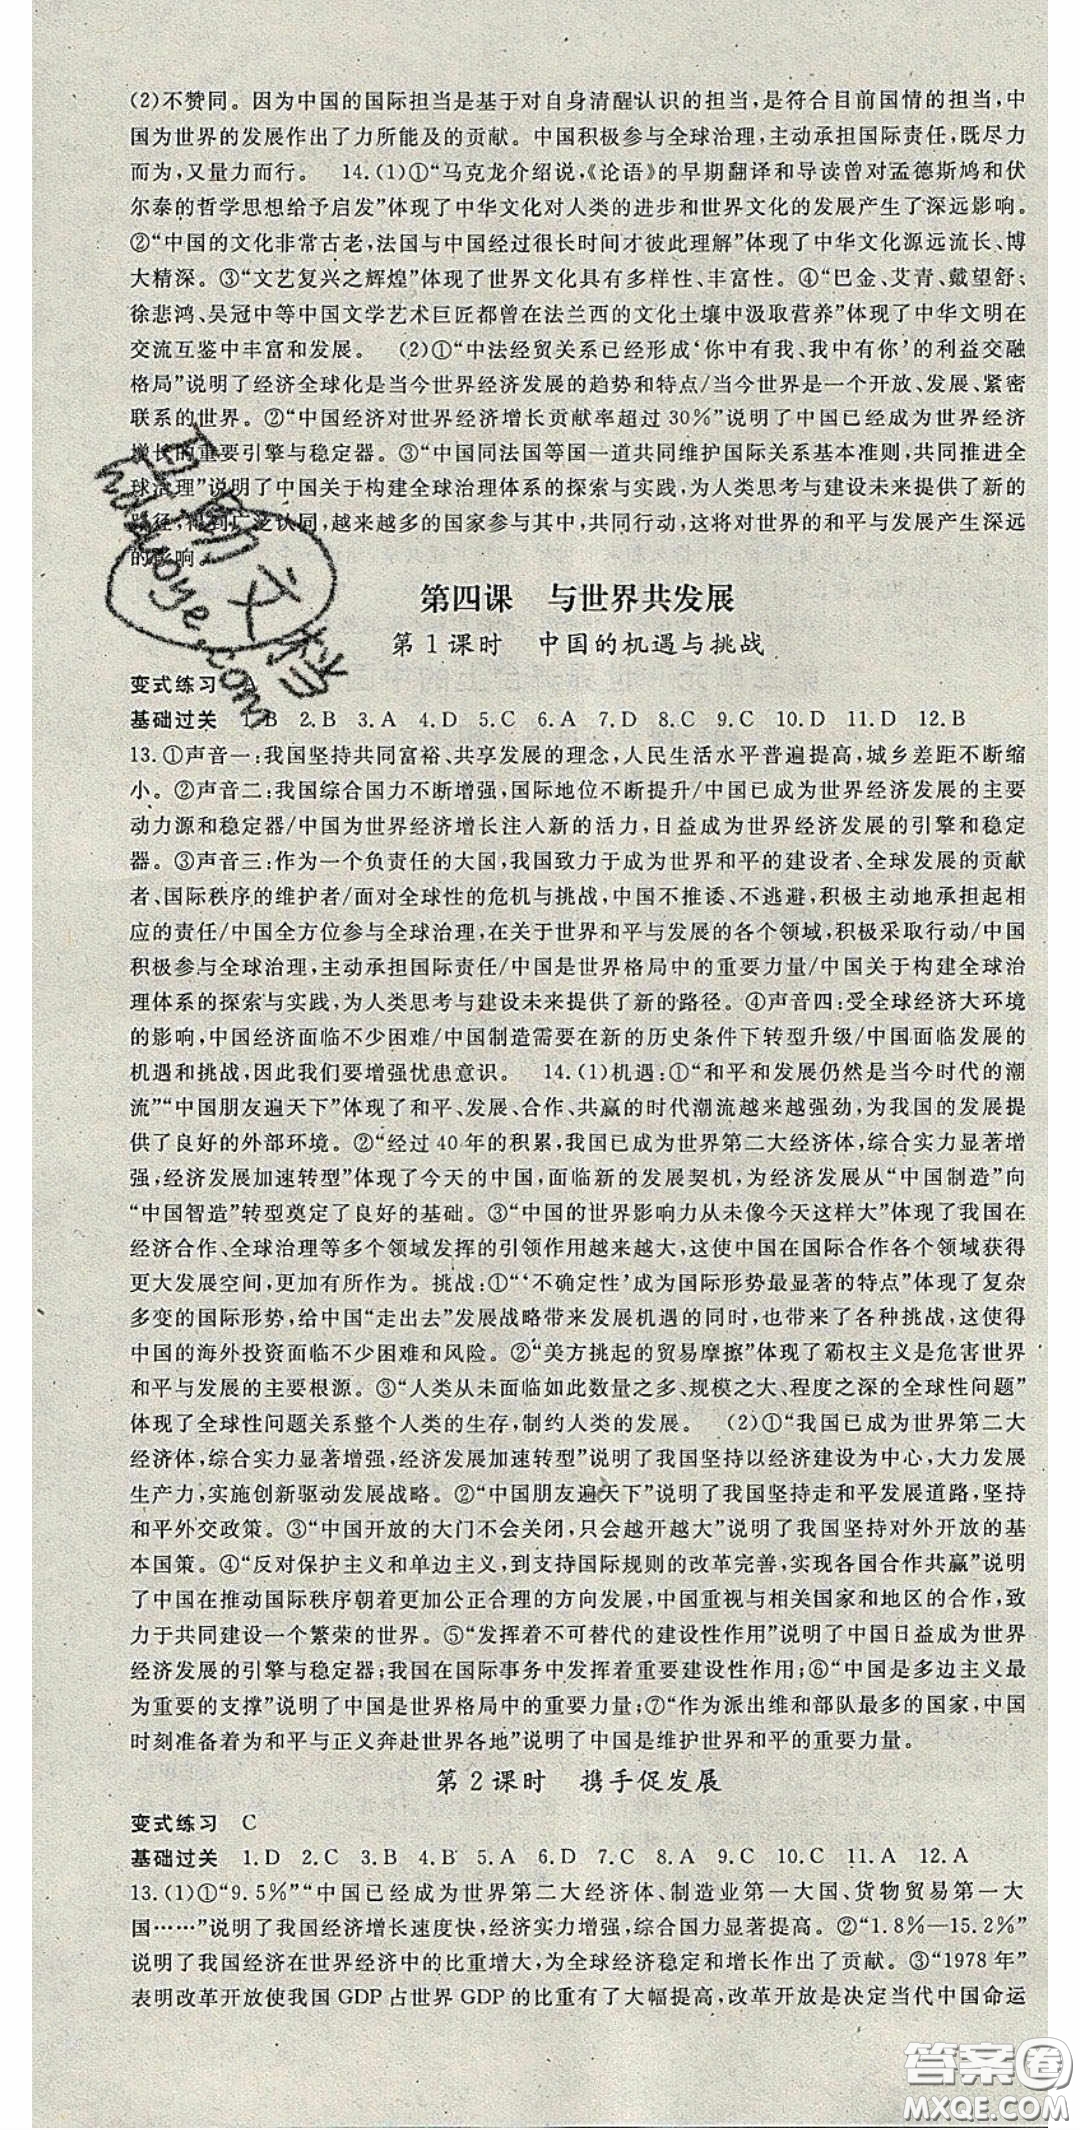 (2)不赞同。因为中国的国际担当是基于对自身清醒认识的担当,是符合目前国情的担当,中
国为世界的发展作出了力所能及的贡献。中国积极参与全球治理,主动承担国际责任,既尽力
而为,又量力而行。 14.(1)①“马克龙介绍说,《论语》的早期翻译和导读曾对孟德斯鸠和伏
尔泰的哲学思想给予启发”体现了中华文化对人类的进步和世界文化的发展产生了深远影响。
②“中国的文化非常古老,法国与中国经过很长时间才彼此理解”体现了中华文化源远流长、博
大精深。③“文艺复兴之辉煌”体现了世界文化具有多样性、丰富性。④“巴金、艾青、戴望舒;
徐悲鸿、吴冠中等中国文学艺术巨匠都曾在法兰西的文化土壤中汲取营养”体现了中华文明在
交流互鉴中丰富和发展。 (2)①“中法经贸关系已经形成‘你中有我、我中有你’的利益交融
格局”说明了经济全球化是当今世界经济发展的趋势和特点/当今世界是一个开放、发展、紧密
联系的世界。②“中国经济对世界经济增长贡献率超过30%”说明了中国已经成为世界经济
增长的重要引擎与稳定器。③“中国同法国等国一道共同维护国际关系基本准则,共同推进全
球治理”说明了中国关于构建全球治理体系的探索与实践,为人类思考与建设未来提供了新的
路径,得到广泛认同,越来越多的国家参与其中,共同行动,这将对世界的和平与发展产生深远
的影响。
第四课 与世界共发展
第1课时 中国的机遇与挑战
变式练习
基础过关 1.B 2.B 3.A 4.D 5.C 6.A 7.D 8.C 9.C 10.D 11.D 12.B
13.①声音一:我国坚持共同富裕、共享发展的理念,人民生活水平普遍提高,城乡差距不断缩
小。②声音二:我国综合国力不断增强,国际地位不断提升/中国已成为世界经济发展的主要
动力源和稳定器/中国为世界经济增长注入新的活力,日益成为世界经济发展的引擎和稳定
器。③声音三:作为一个负责任的大国,我国致力于成为世界和平的建设者、全球发展的贡献
者、国际秩序的维护者/面对全球性的危机与挑战,中国不推诿、不逃避,积极主动地承担起相
应的责任/中国全方位参与全球治理,在关于世界和平与发展的各个领域,积极采取行动/中国
积极参与全球治理,主动承担国际责任/中国是世界格局中的重要力量/中国关于构建全球治
理体系的探索与实践,为人类思考与建设未来提供了新的路径。④声音四:受全球经济大环境
的影响,中国经济面临不少困难/中国制造需要在新的历史条件下转型升级/中国面临发展的
机遇和挑战,因此我们要增强忧患意识。 14.(1)机遇:①“和平和发展仍然是当今时代的潮
流”“中国朋友遍天下”体现了和平、发展、合作、共赢的时代潮流越来越强劲,为我国的发展提
供了良好的外部环境。②“经过40年的积累,我国已成为世界第二大经济体,综合实力显著增
强,经济发展加速转型”体现了今天的中国,面临新的发展契机,为经济发展从“中国制造”向
“中国智造”转型奠定了良好的基础。③“中国的世界影响力从未像今天这样大”体现了我国在
经济合作、全球治理等多个领域发挥的引领作用越来越大,这使中国在国际合作各个领域获得
更大发展空间,更加有所作为。挑战:①“‘不确定性’成为国际形势最显著的特点”体现了复杂
多变的国际形势,给中国“走出去”发展战略带来发展机遇的同时,也带来了各种挑战,这使得
中国的海外投资面临不少困难和风险。②“美方挑起的贸易摩擦”体现了霸权主义是危害世界
和平与发展的主要根源。③“人类从未面临如此数量之多、规模之大、程度之深的全球性问题”
体现了全球性问题关系整个人类的生存,制约人类的发展。 (2)①“我国已成为世界第二大
经济体,综合实力显著增强,经济发展加速转型”说明了我国坚持以经济建设为中心,大力发展
生产力,实施创新驱动发展战略。②“中国朋友遍天下”说明了我国坚持走和平发展道路,坚持
和平外交政策。③“中国开放的大门不会关闭,只会越开越大”说明了我国坚持对外开放的基
本国策。④“反对保护主义和单边主义,到支持国际规则的改革完善,实现各国合作共赢”说明
了中国在推动国际秩序朝着更加公正合理的方向发展,中国重视与相关国家和地区的合作,致
力于共同建设一个繁荣的世界。⑤“发挥着不可替代的建设性作用”说明了中国日益成为世界
经济发展的引擎与稳定器;我国在国际事务中发挥着重要建设性作用;⑥“中国是多边主义最
为重要的支撑”说明了中国是世界格局中的重要力量;⑦“作为派出维和部队最多的国家,中国
时刻准备着为和平与正义奔赴世界各地”说明了中国是维护世界和平的重要力量。
第2课时 携手促发展
变式练习 C
基础过关 1.D 2.C 3.B 4.B 5.A 6.D 7.C 8.A 9.C 10.C 11.A 12.A
13.(1)①“9.5%”“中国已经成为世界第二大经济体、制造业第一大国、货物贸易第一大
国……”说明了我国经济增长速度快,经济实力增强,综合国力显著提高。②“1.8%—15.2%”
说明了我国经济在世界经济中的比重增大,为全球经济稳定和增长作出了贡献。③“1978年”
表明改革开放使我国GDP占世界GDP的比重有了大幅提高,改革开放是决定当代中国命运
答案圈
MXQE.COM